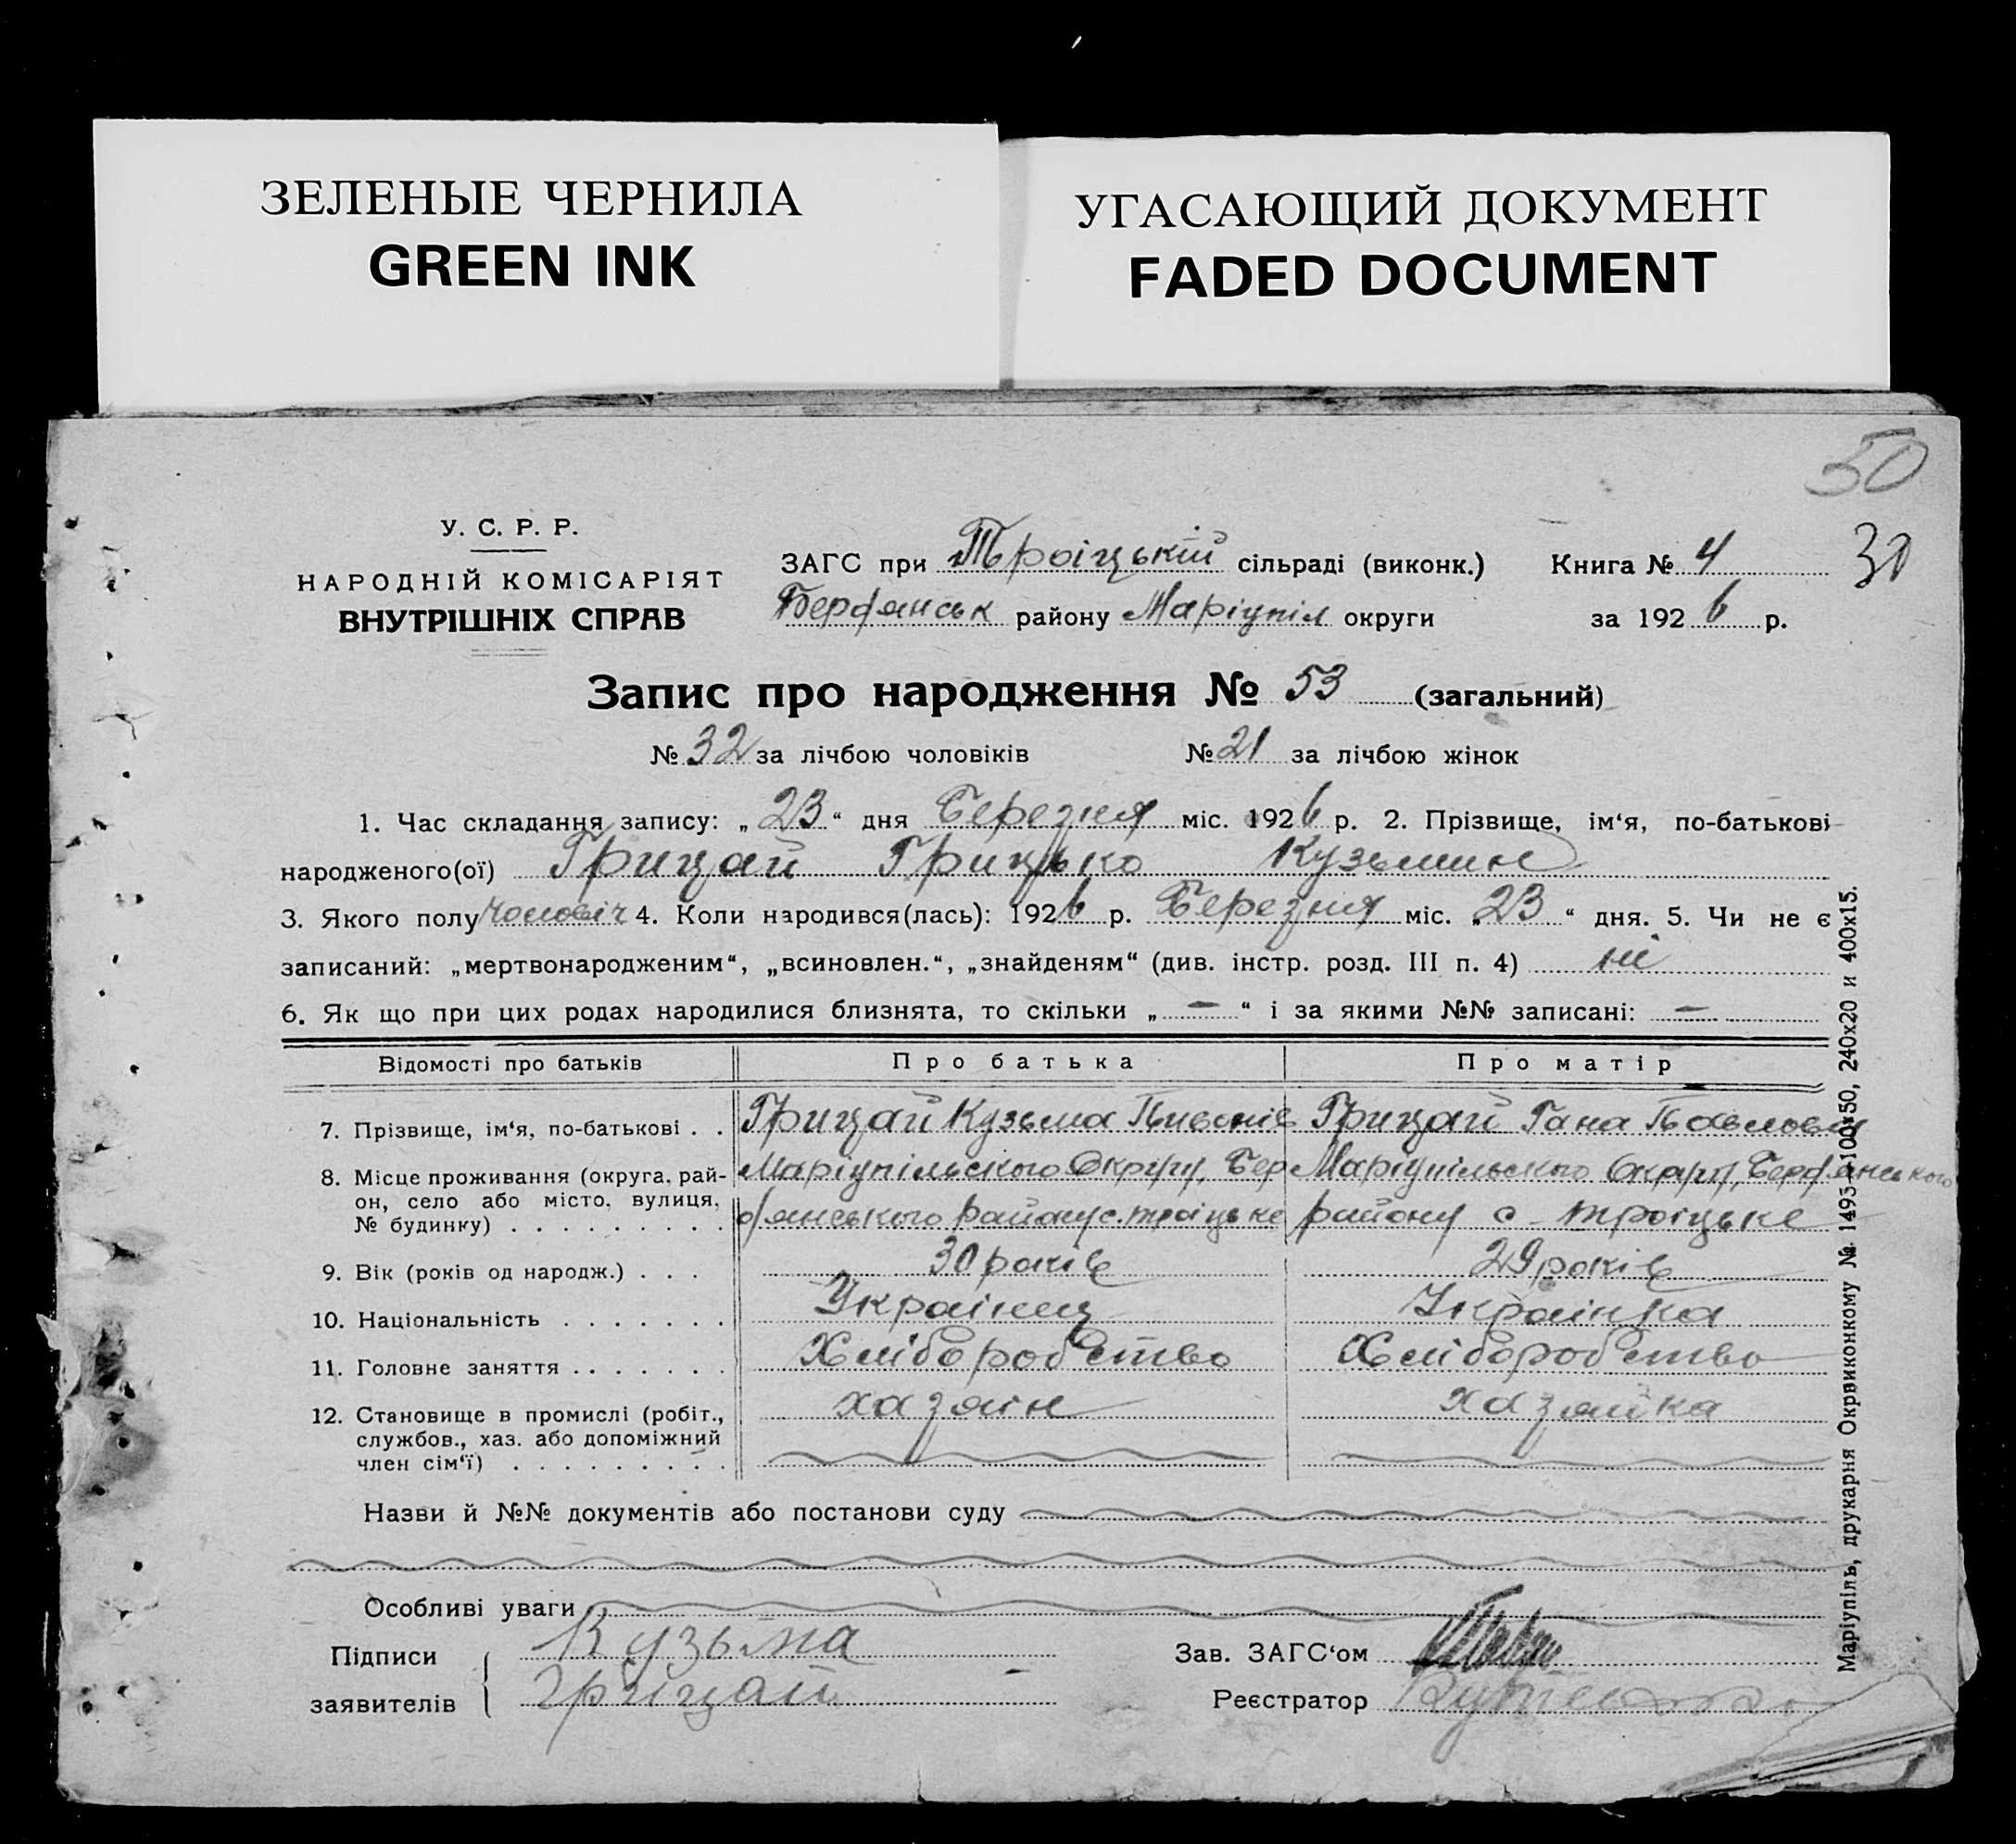 ЗЕЛЕНЫЕ ЧЕРНИЛА
GREEN INK
УГАСАЮЩИЙ ДОКУМЕНТ
FADED DOCUMENT
50
30
У. С. Р. Р.
НАРОДНІЙ КОМІСАРІЯТ
ВНУТРІШНІХ СПРАВ
ЗАГС при Троіцькій сільраді (виконк.) Книга № 4
Бердянськ району Маріупіл округи за 1926 р.
Запис про народження № 53 (загальний)
№ 32 за лічбою чоловіків № 21 за лічбою жінок
1. Час складання запису: „23“ дня Березня міс. 1926 р. 2. Прізвище, ім‘я, по-батькові
народженого(ої) Грицай Грицько Кузьмин
3. Якого полу чоловіч 4. Коли народився(лась): 1926 р. Березня міс. „23“ дня. 5. Чи не є
записаний: „мертвонародженим“, „всиновлен.“, „знайденям“ (див. інстр. розд. III п. 4) ні
6. Як що при цих родах народилися близнята, то скільки „—“ і за якими №№ записані: —
Відомості про батьків Про батька Про матір
7. Прізвище, ім‘я, по-батькові . . Грицай Кузьма Грицай Гана Павловна
8. Місце проживання (округа, рай- Маріупільского Округу, Бер Маріупільского Округу, Бердянського
он, село або місто, вулиця, дянського району с. троіцьке району с - троіцьке
№ будинку) . . . . . . . . .
9. Вік (років од народж.) . . . 30 років 29 років
10. Національність . . . . . . . Украінец Украінка
11. Головне заняття . . . . . . . Хліборобство Хліборобство
12. Становище в промислі (робіт., хазяін хазяйка
службов., хаз. або допоміжний
член сім‘ї) . . . . . . . . .
Назви й №№ документів або постанови суду
Особливі уваги
Підписи Кузьма Зав. ЗАГС‘ом
заявителів Грицай Реєстратор
Маріупіль, друкарня Окрвиконкому № 1493—100×50, 240х20 и 400х15.